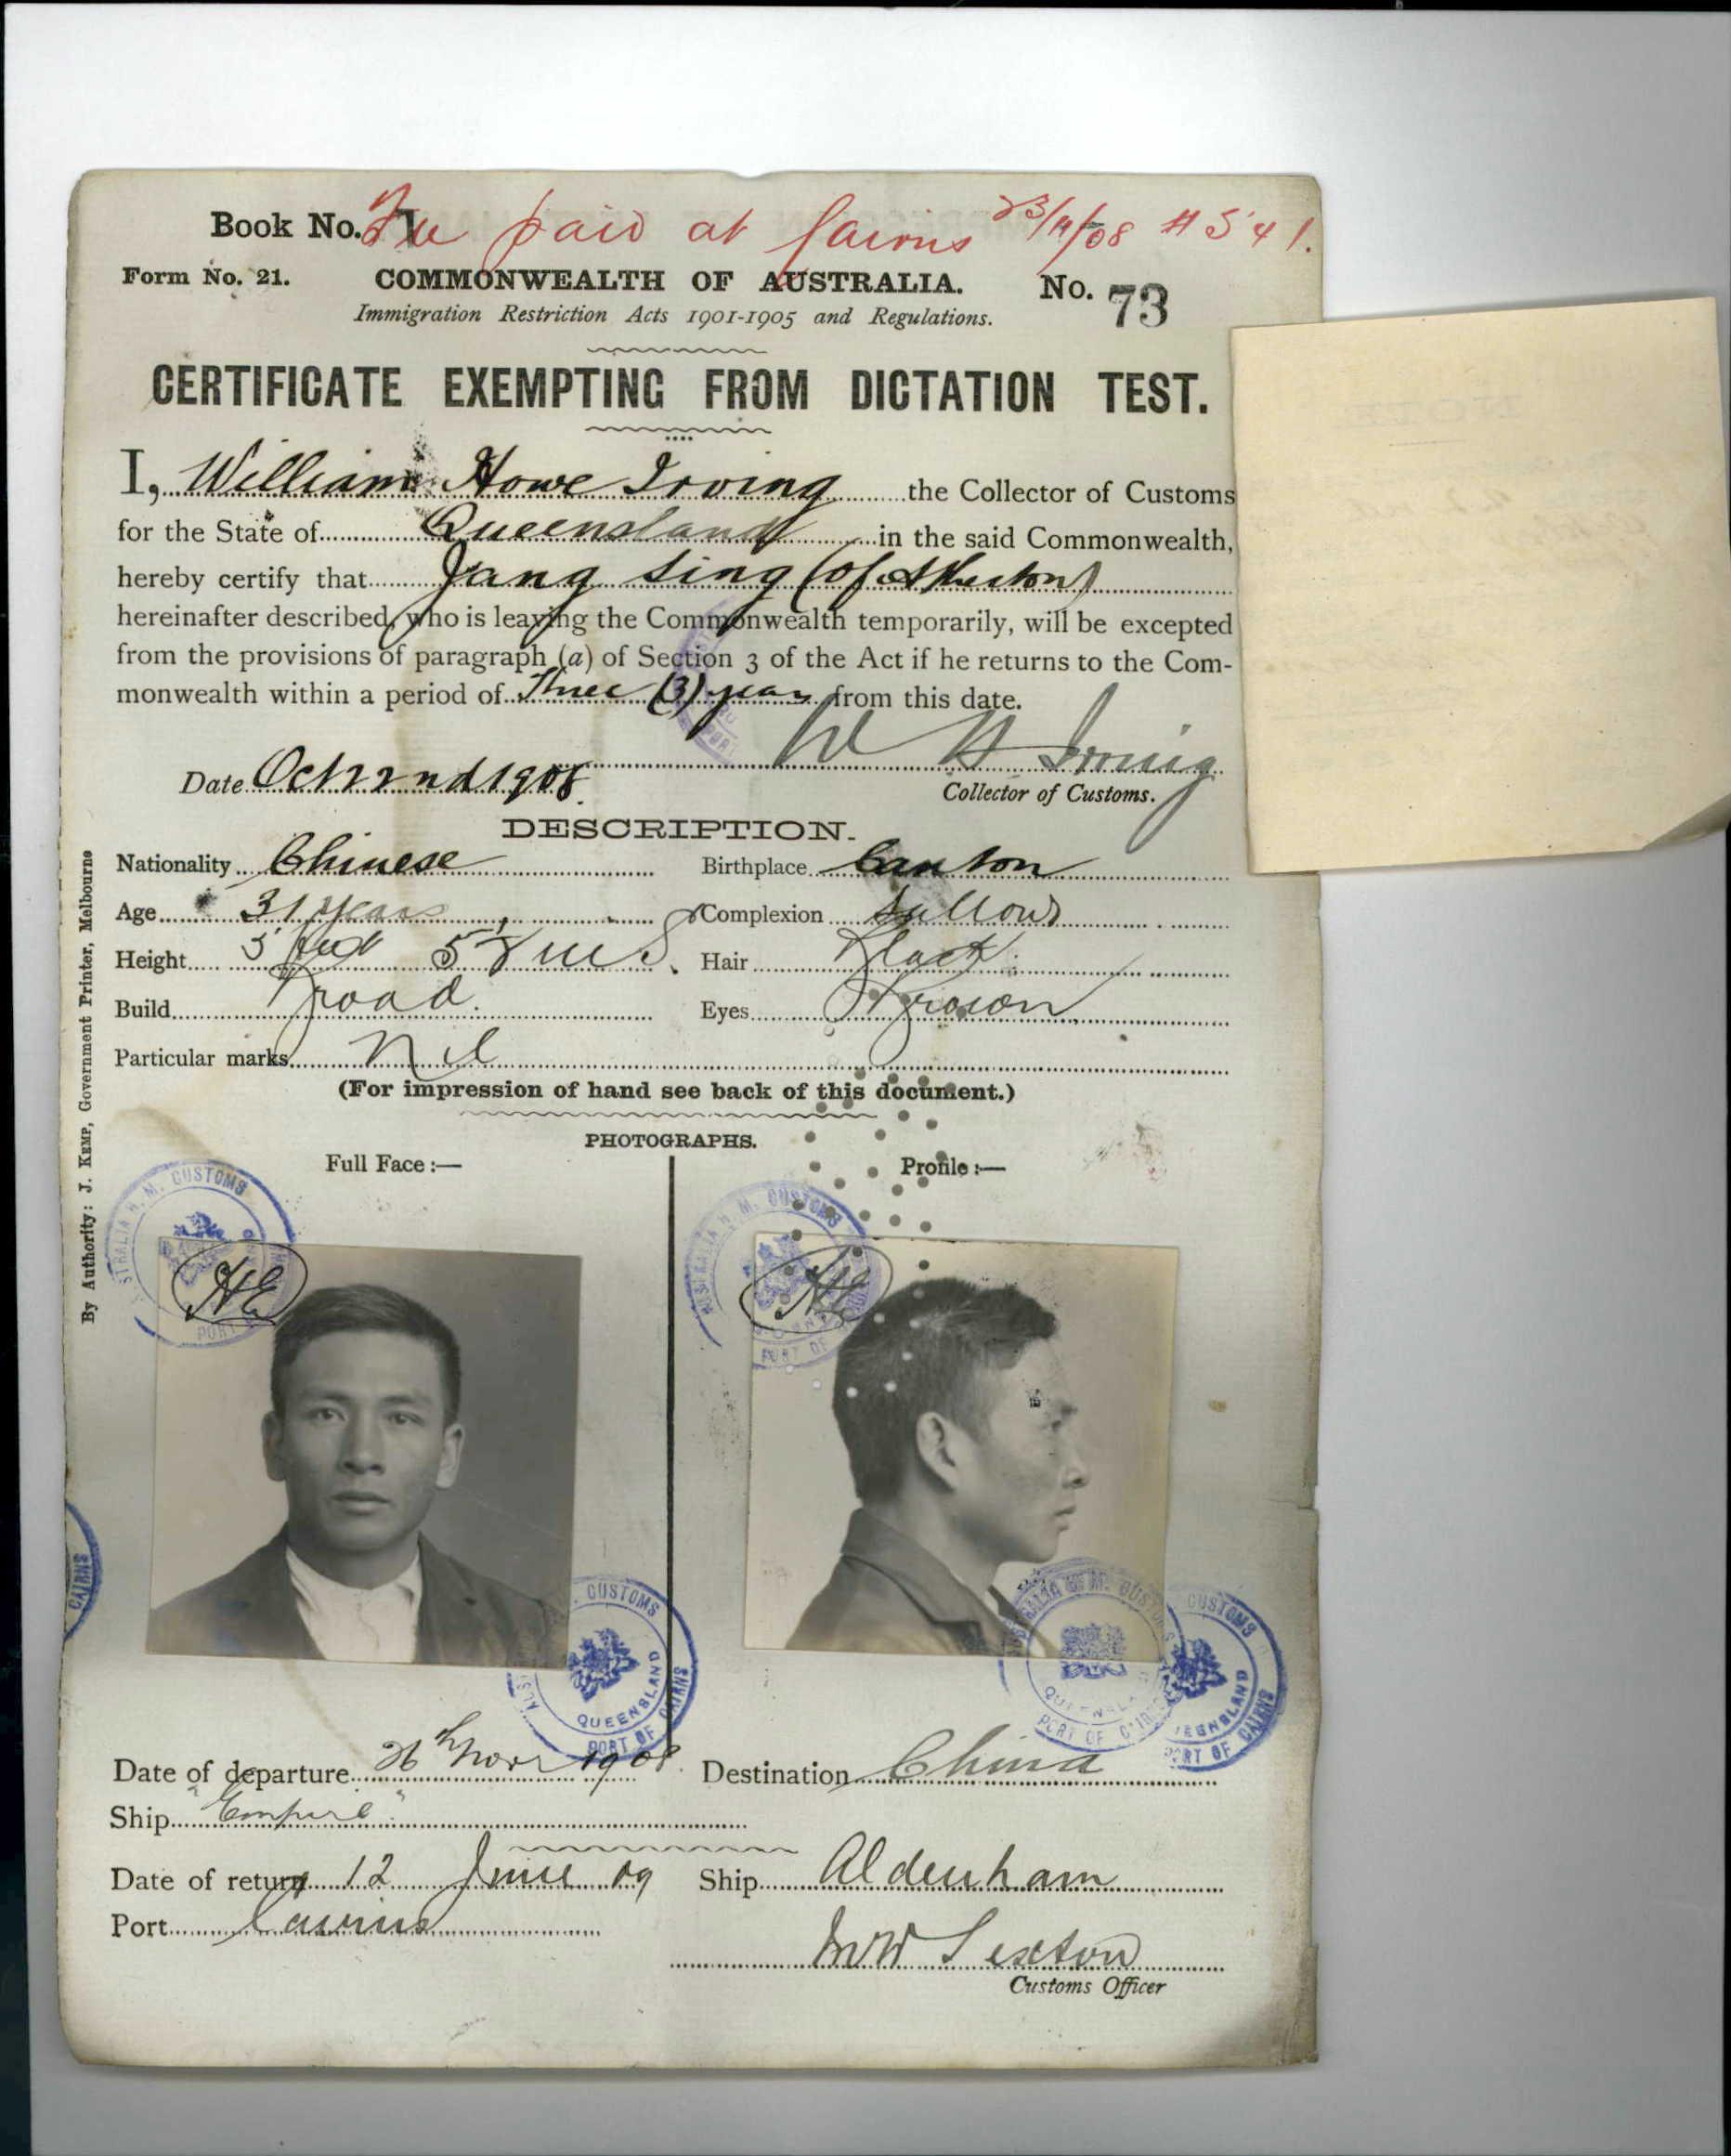 Book No. 1 Fee paid at Cairns 23/11/08 # 541.
Form No. 21. COMMONWEALTH OF AUSTRALIA. No. 73
Immigration Restriction Acts 1901-1905 and Regulations.
CERTIFICATE EXEMPTING FROM DICTATION TEST.
I, William Howe Irving the Collector of Customs
for the State of Queensland in the said Commonwealth,
hereby certify that Jang Sing (of Atherton)
hereinafter described, who is leaving the Commonwealth temporarily, will be excepted
from the provisions of paragraph (a) of Section 3 of the Act if he returns to the Com-
monwealth within a period of Three (3) years from this date.
W H Irving
Date Oct 22nd 1908. Collector of Customs.
DESCRIPTION.
Nationality Chinese Birthplace Canton
Age 31 years Complexion Sallow
Height 5 feet 5 ins. Hair Black
Build Broad. Eyes Brown
Particular marks Nil
(For impression of hand see back of this document.)
PHOTOGRAPHS.
Full Face :— Profile :—
By Authority: J. KEMP, Government Printer, Melbourne
AUSTRALIA H. M. CUSTOMS
PORT
HE
AUSTRALIA H. M. CUSTOMS
PORT OF
HE
CAIRNS
CUSTOMS
QUEENSLAND
PORT OF CAIRNS
AUSTRALIA H. M. CUSTOMS
QUEENSLAND
PORT OF CAIRNS
CUSTOMS
QUEENSLAND
PORT OF CAIRNS
Date of departure 26th Novr 1908. Destination China
Ship "Empire"
Date of return 12 June 09 Ship Aldenham
Port Cairns
MW Sexton
Customs Officer